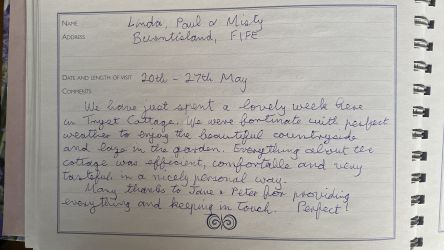 NAME Linda, Paul & Misty
ADDRESS Burntisland, FIFE
DATE AND LENGTH OF VISIT 20th - 27th May
COMMENTS
We have just spent a lovely week here
in Tryst Cottage. We were fortunate with perfect
weather to enjoy the beautiful countryside
and laze in the garden. Everything about the
cottage was efficient, comfortable and very
tasteful in a nicely personal way.
Many thanks to Jane & Peter for providing
everything and keeping in touch. Perfect!